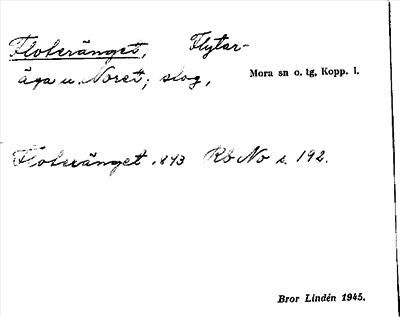 Floteränget, Flytar-
äga u. Noret; slog, Mora sn o. tg, Kopp. l.
Floteränget 1843 Rb No s. 192.
Bror Lindén 1945.